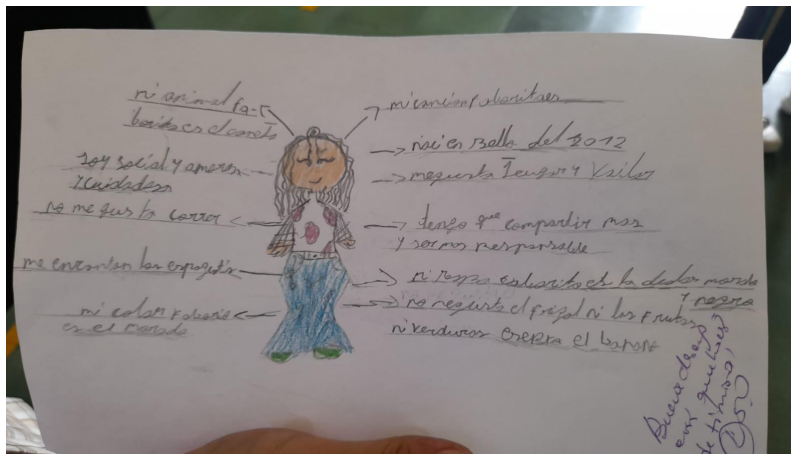 mi animal fa-
borito es el conejo
soy social y amorosa
y cuidadosa
no me gusta correr
me encantan los espagetis
mi color faborito
es el morado
mi cancion faborita es
naci en Balla del 2012
me gusta Jugar y Vailar
tengo que compartir mas
y ser mas responsable
mi ropa faborita es la de color morado
y negro
no me gusta el frijol ni las frutas
ni verduras exepto el banano
Buena descrip
que haces
de ti misma,